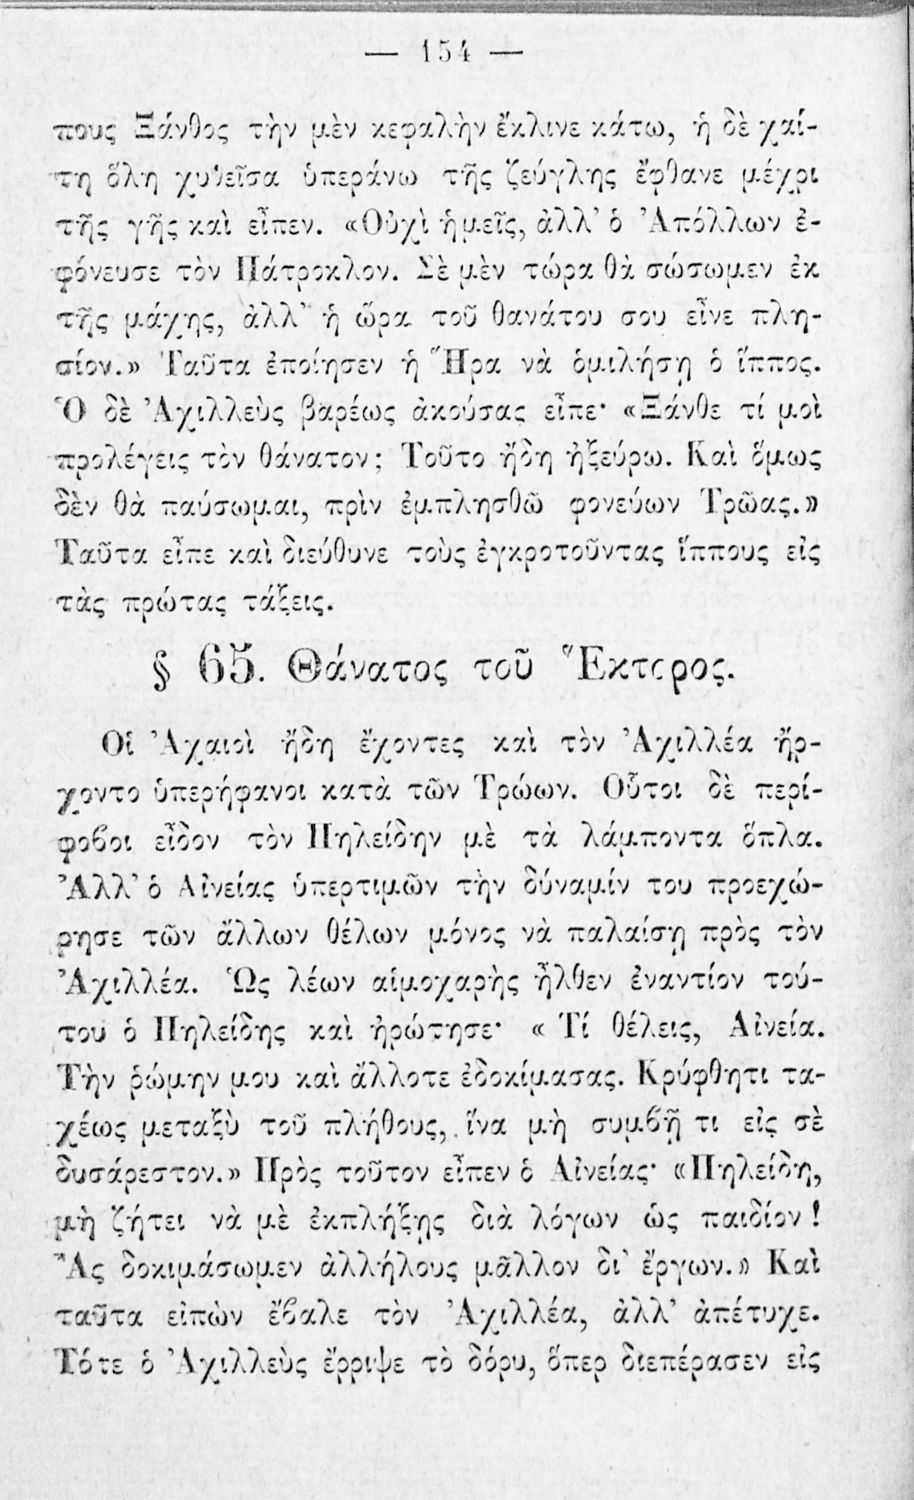 — 154 —
πους Ξάνθος τὴν μὲν κεφαλὴν ἔκλινε κάτω, ἡ δὲ χαί-
τη ὅλη χυθεῖσα ὑπεράνω τῆς ζεύγλης ἔφθανε μέχρι
τῆς γῆς καὶ εἶπεν. «Οὐχὶ ἡμεῖς, ἀλλ’ ὁ Ἀπόλλων ἐ-
φόνευσε τὸν Πάτροκλον. Σὲ μὲν τώρα θὰ σώσωμεν ἐκ
τῆς μάχης, ἀλλ’ ἡ ὥρα τοῦ θανάτου σου εἶνε πλη-
σίον.» Ταῦτα ἐποίησεν ἡ Ἥρα νὰ ὁμιλήσῃ ὁ ἵππος.
Ὁ δὲ Ἀχιλλεὺς βαρέως ἀκούσας εἶπε· «Ξάνθε τί μοὶ
προλέγεις τὸν θάνατον; Τοῦτο ἤδη ἠξεύρω. Καὶ ὅμως
δὲν θὰ παύσωμαι, πρὶν ἐμπλησθῶ φονεύων Τρῶας.»
Ταῦτα εἶπε καὶ διεύθυνε τοὺς ἐγκροτοῦντας ἵππους εἰς
τὰς πρώτας τάξεις.
§ 65. Θάνατος τοῦ Ἕκτορος.
Οἱ Ἀχαιοὶ ἤδη ἔχοντες καὶ τὸν Ἀχιλλέα ἤρ-
χοντο ὑπερήφανοι κατὰ τῶν Τρώων. Οὗτοι δὲ περί-
φοβοι εἶδον τὸν Πηλείδην μὲ τὰ λάμποντα ὅπλα.
Ἀλλ’ ὁ Αἰνείας ὑπερτιμῶν τὴν δύναμίν του προεχώ-
ρησε τῶν ἄλλων θέλων μόνος νὰ παλαίσῃ πρὸς τὸν
Ἀχιλλέα. Ὡς λέων αἱμοχαρὴς ἦλθεν ἐναντίον τού-
του ὁ Πηλείδης καὶ ἠρώτησε· « Τί θέλεις, Αἰνεία.
Τὴν ῥώμην μου καὶ ἄλλοτε ἐδοκίμασας. Κρύφθητι τα-
χέως μεταξὺ τοῦ πλήθους, ἵνα μὴ συμβῇ τι εἰς σὲ
δυσάρεστον.» Πρὸς τοῦτον εἶπεν ὁ Αἰνείας· «Πηλείδη,
μὴ ζήτει νὰ μὲ ἐκπλήξῃς διὰ λόγων ὡς παιδίον!
Ἂς δοκιμάσωμεν ἀλλήλους μᾶλλον δι’ ἔργων.» Καὶ
ταῦτα εἰπὼν ἔβαλε τὸν Ἀχιλλέα, ἀλλ’ ἀπέτυχε.
Τότε ὁ Ἀχιλλεὺς ἔρριψε τὸ δόρυ, ὅπερ διεπέρασεν εἰς